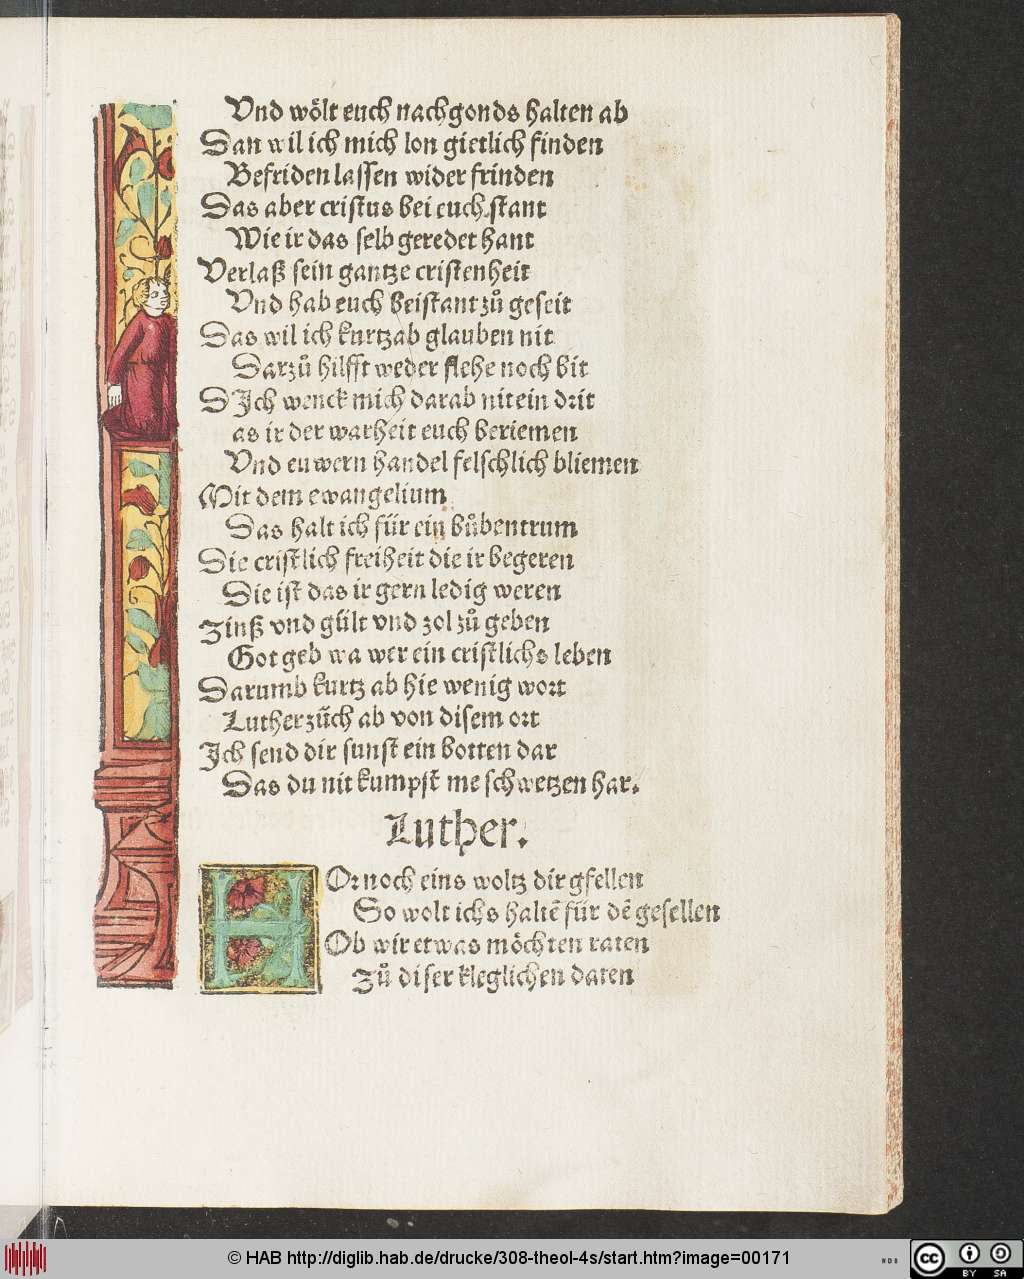 Vnd wölt euch nachgonds halten ab
San wil ich mich lon gietlich finden
Befriden lassen wider frinden
Das aber cristus bei euch stant
Wie ir das selb geredet hant
Verlaß sein gantze cristenheit
Vnd hab euch beistant zů geseit
Das wil ich kurtzab glauben nit
Darzů hilfft weder flehe noch bit
D Ich wenck mich darab nit ein drit
as ir der warheit euch beriemen
Vnd euwern handel felschlich bliemen
Mit dem ewangelium
Das halt ich für ein bůbentrum
Die cristlich freiheit die ir begeren
Die ist das ir gern ledig weren
Zinß vnd gült vnd zol zů geben
Got geb wa wer ein cristlichs leben
Darumb kurtz ab hie wenig wort
Luther züch ab von disem ort
Ich send dir sunst ein botten dar
Das du nit kumpst me schwetzen har.
Luther.
HOr noch eins woltz dir gfellen
So wolt ichs haltē für dē gesellen
Ob wir etwas möchten raten
Zů diser kleglichen daten
© HAB http://diglib.hab.de/drucke/308-theol-4s/start.htm?image=00171
WDB
cc BY SA